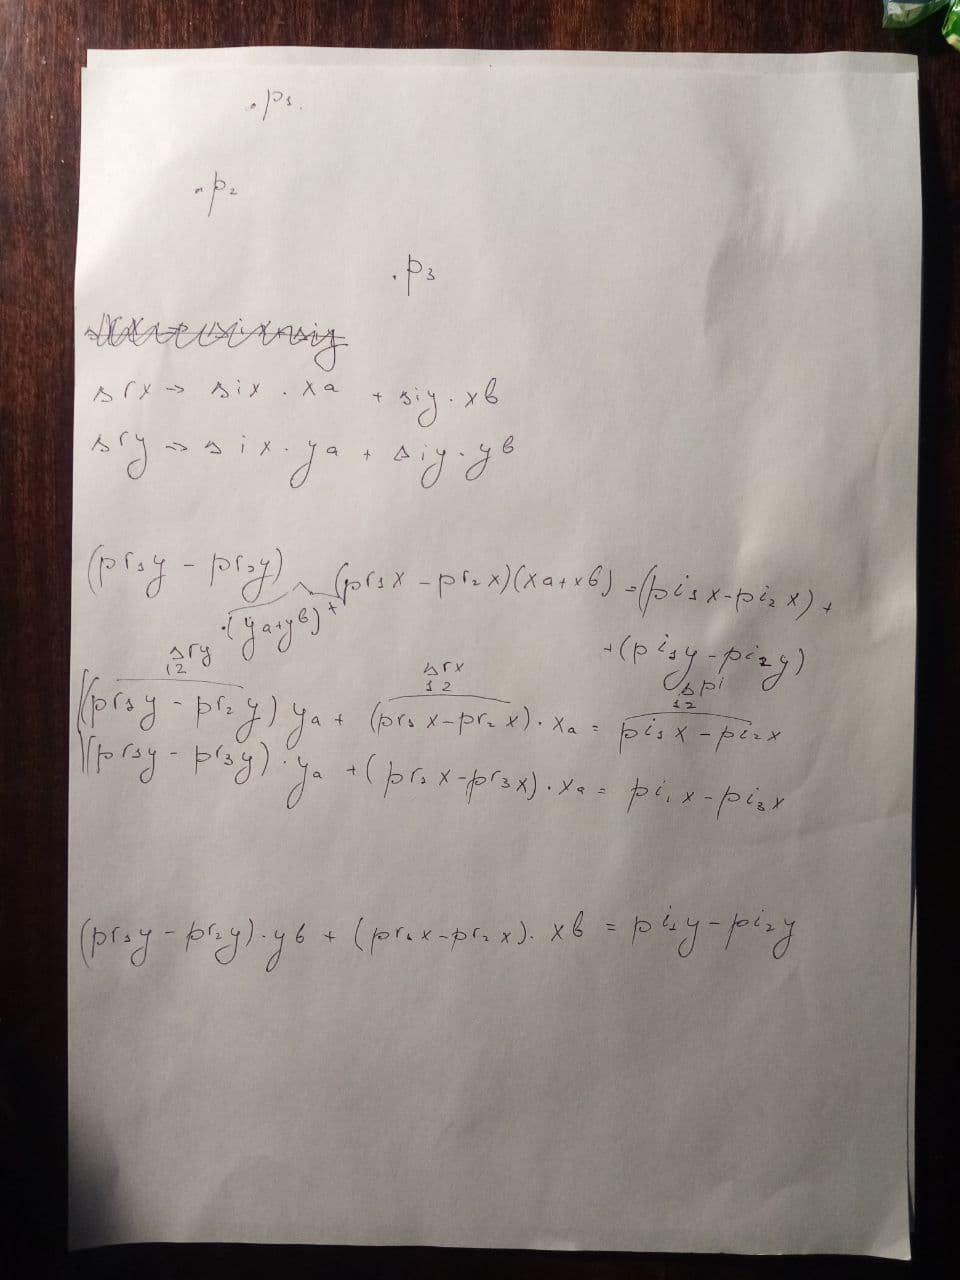 .p₁.
.p₂
.p₃
srx -> six · xa + siy · xb
sry => six · ya + siy · yb
(pr₁y - pr₂y)
(pr₁x - pr₂x)(xa+xb) = (pi₁x-pi₂x) +
·(ya+yb)+
+(pi₁y-pi₂y)
Δry
12
Δrx
12
Δpi
12
(pr₁y - pr₂y) ya + (pr₁x-pr₂x)·xa = pi₁x - pi₂x
(pr₁y - pr₃y)·ya +(pr₁x-pr₃x)·xa = pi₁x-pi₃x
(pr₁y-pr₂y)·yb + (pr₁x-pr₂x)·xb = pi₁y-pi₂y